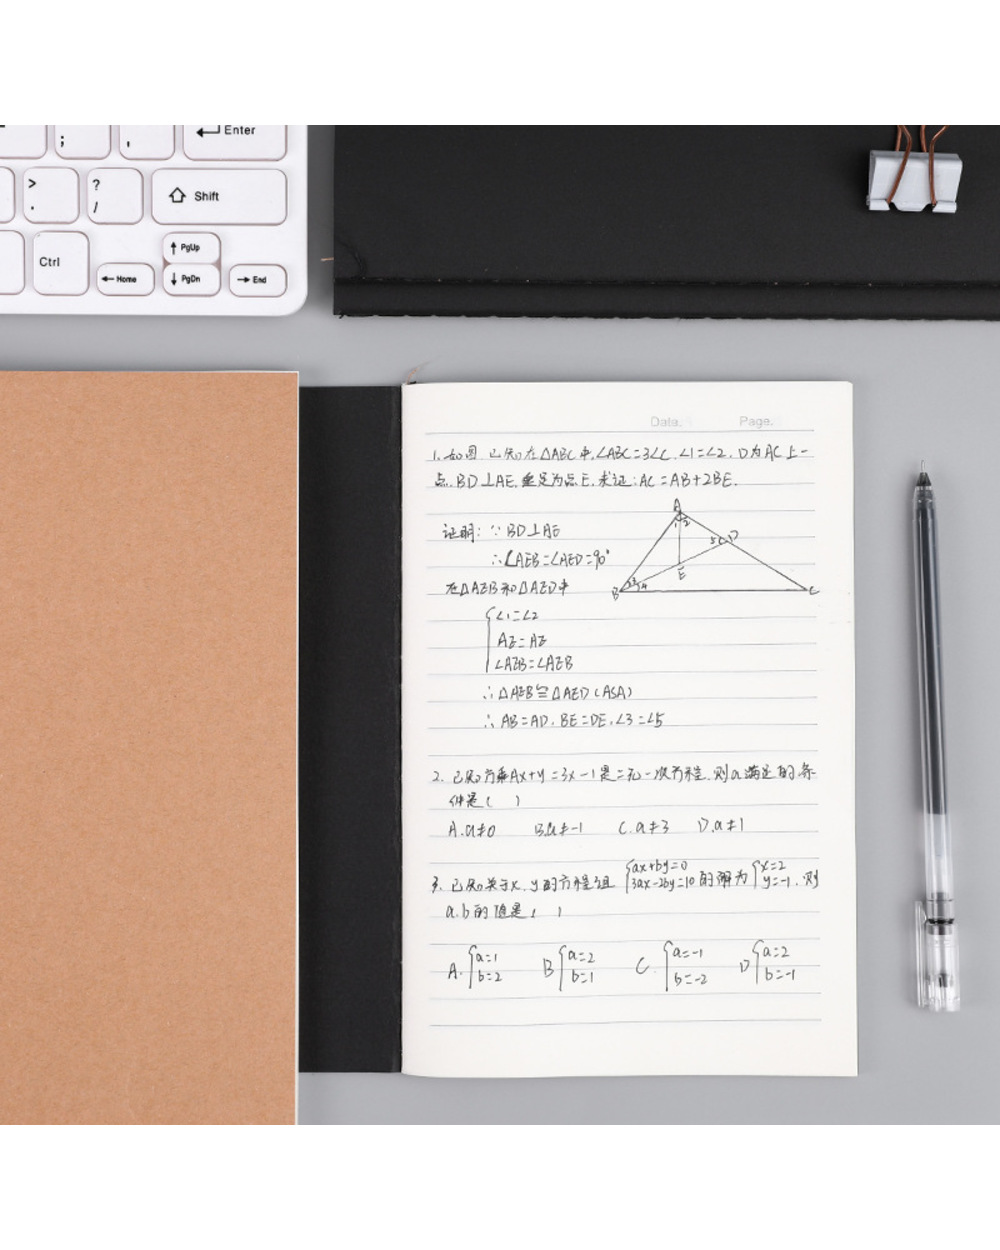 Enter
;
,
>
.
?
/
Shift
Ctrl
PgUp
Home
PgDn
End
Data. Page.
1.如图 已知在△ABC中,∠ABC=3∠C,∠1=∠2,D为AC上一
点,BD⊥AE,垂足为点E,求证:AC=AB+2BE.
A
1 2
证明:∵BD⊥AE
5 D
∴∠AEB=∠AED=90°
E
在△AEB和△AED中
B 3 4 C
∠1=∠2
AE=AE
∠AEB=∠AEB
∴△AEB≌△AED(ASA)
∴AB=AD,BE=DE,∠3=∠5
2.已知方程Ax+y=3x-1是二元一次方程,则a满足的条
件是( )
A.a≠0 B.a≠-1 C.a≠3 D.a≠1
3.已知关于x、y的方程组{ax+by=0 3ax-2by=10的解为{x=2 y=-1,则
a.b的值是( )
A.{a=1 b=2 B{a=2 b=1 C.{a=-1 b=-2 D{a=2 b=-1